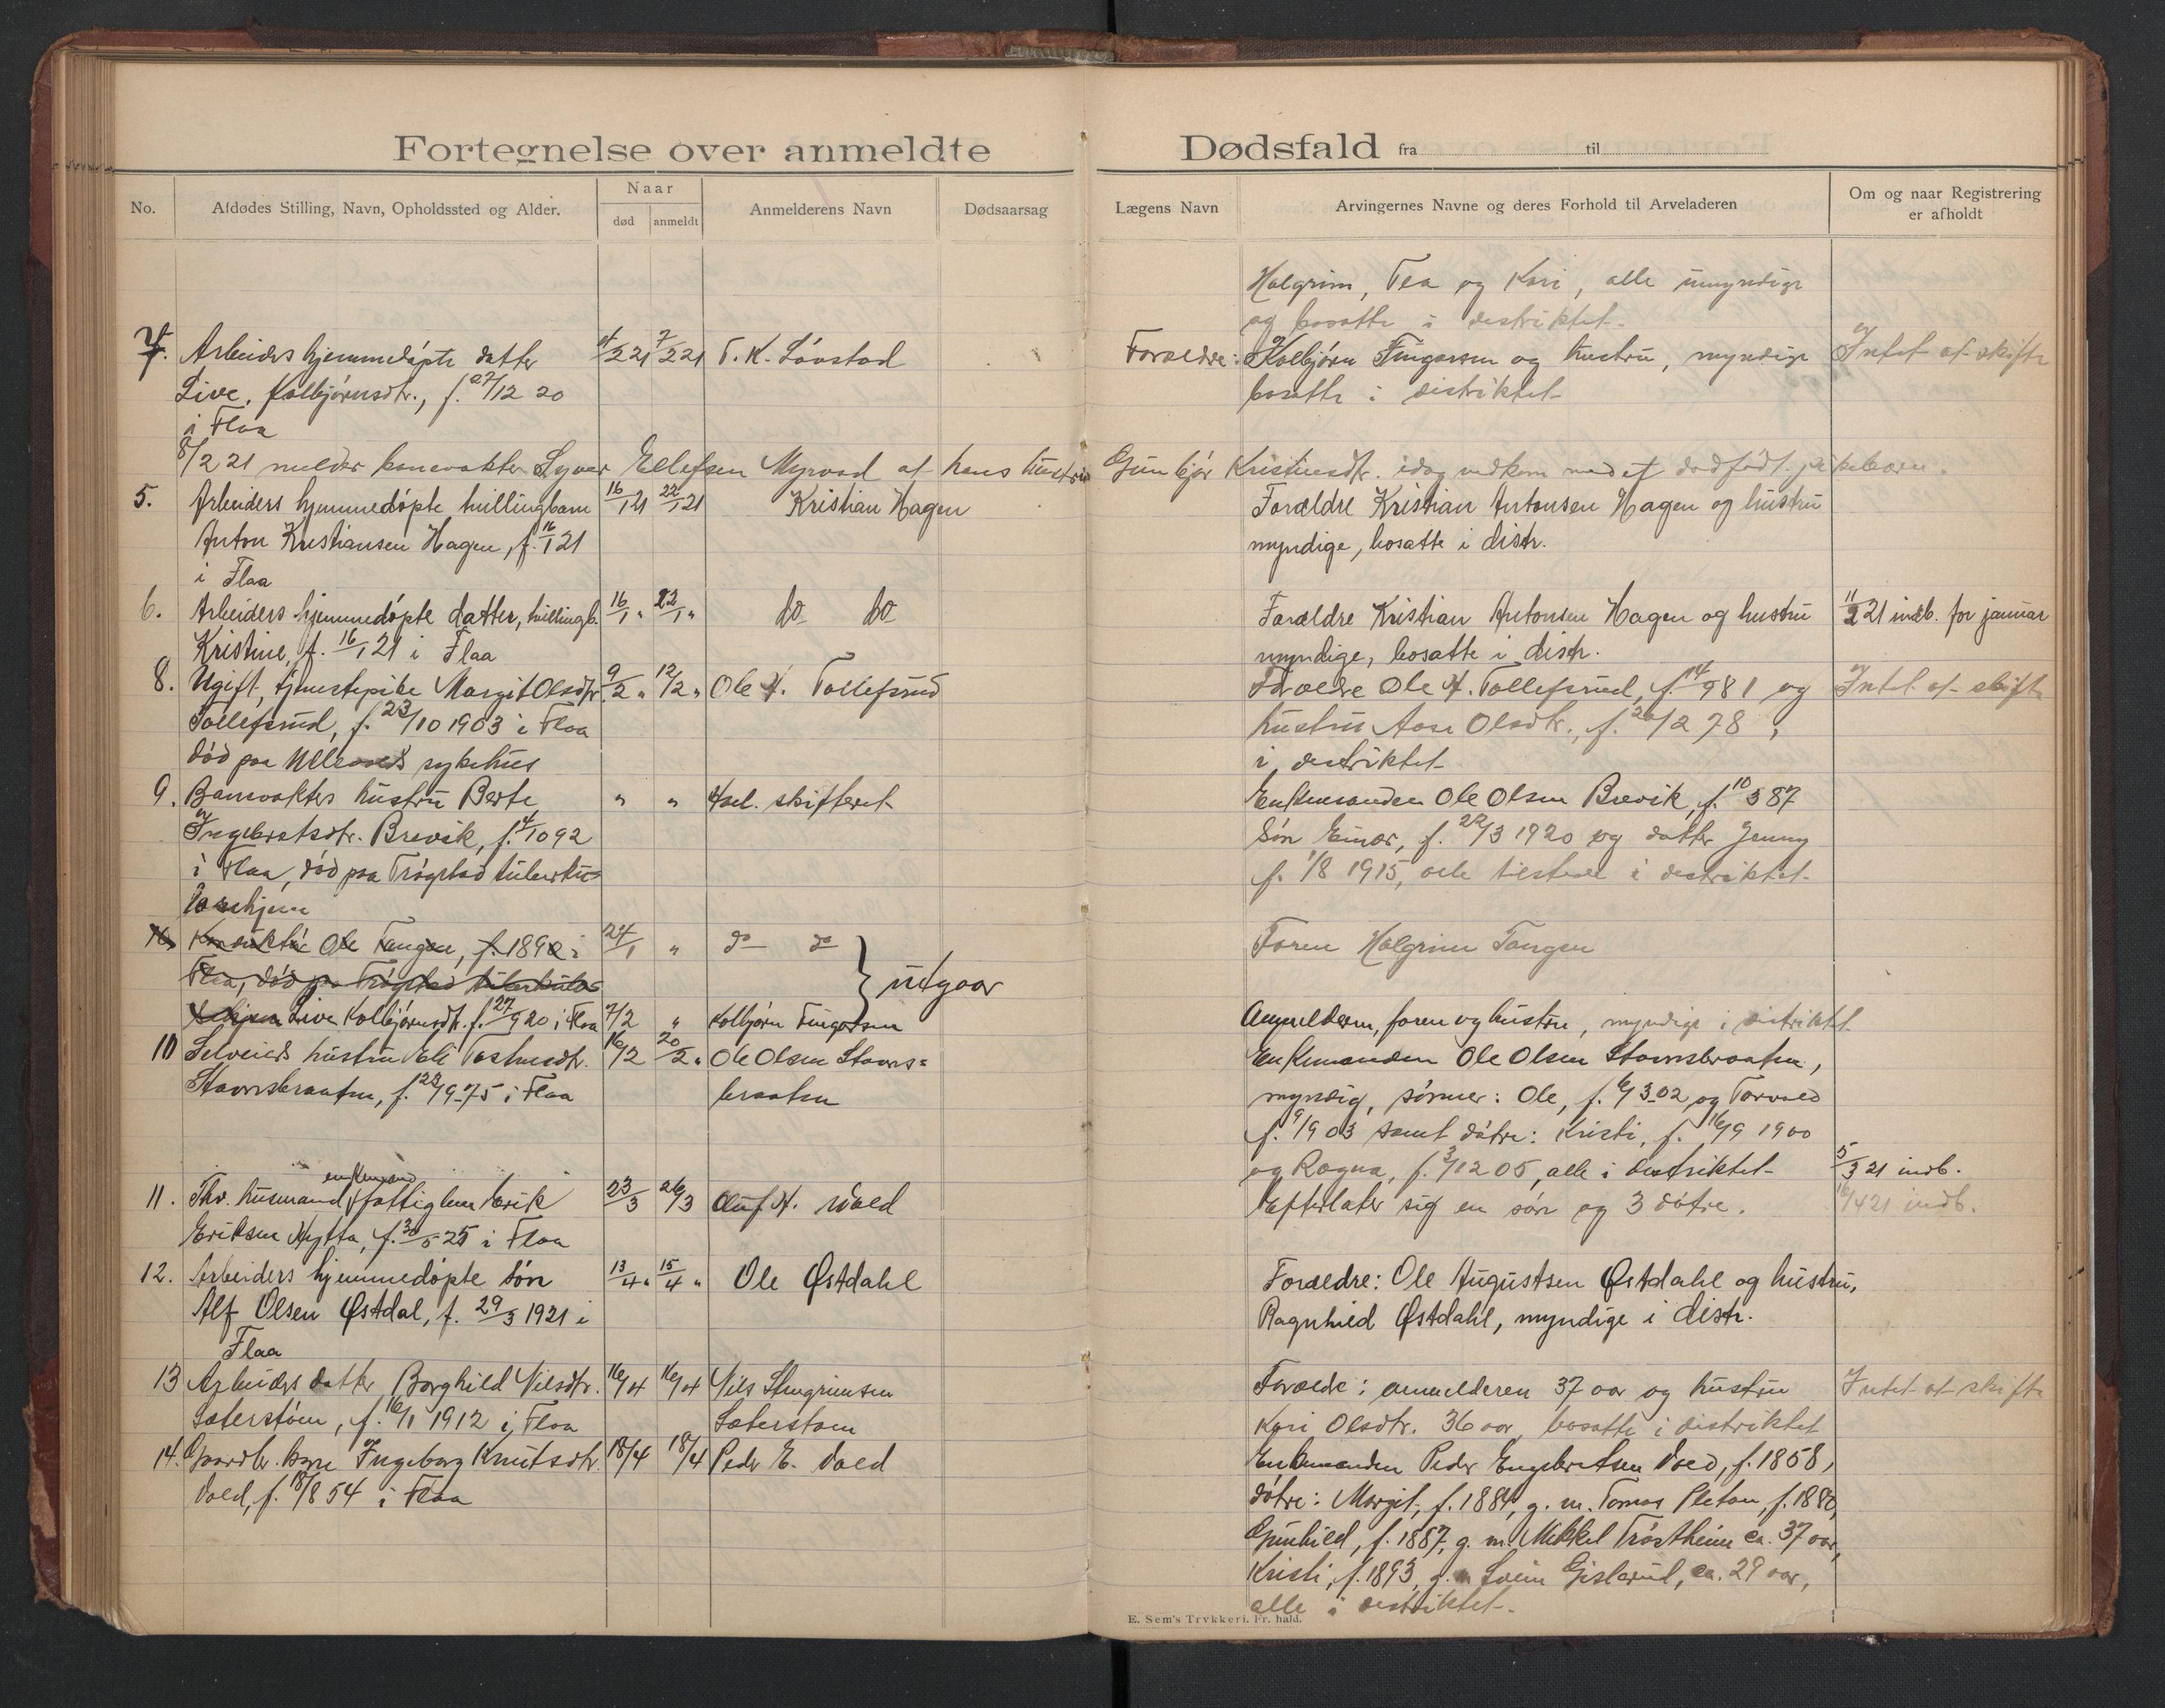 Fortegnelse over anmeldte Dødsfald fra til
No.
Afdødes Stilling, Navn, Opholdssted og Alder.
Naar
død
anmeldt
Anmelderens Navn
Dødsaarsag
Lægens Navn
Arvingernes Navne og deres Forhold til Arveladeren
Om og naar Registrering
er afholdt
Halgrim, Tea og Kari, alle umyndige
og bosatte i distriktet.
7. Arbeiders hjemmedøpte datter 4/2 21 7/2 21 T. K. Løvstad Forældre: Kolbjørn Fingarsen og hustru, myndige Intet at skifte
Live, Kolbjørnsdtr., f. 27/12 20 bosatte i distriktet
i Flaa
8/2 21 melder banevokter Syver Ellefsen Myrvad at hans hustru Gunbjør Kristinsdtr. idag nedkom med et dødfødt pikebarn.
5. Arbeiders hjemmedøpte tvillingbarn 16/1 21 22/1 21 Kristian Hagen Forældre Kristian Antonsen Hagen og hustru
Anton Kristiansen Hagen, f. 16/1 21 myndige, bosatte i distr.
i Flaa
6. Arbeiders hjemmedøpte datter, tvillingb. 16/1 " 22/1 " do do Forældre Kristian Antonsen Hagen og hustru 11/2 21 indb. for januar
Kristine, f. 16/1 21 i Flaa myndige, bosatte i distr.
8. Ugift, tjenestepike Margit Olsdtr. 9/2 " 12/2 " Ole H. Tollefsrud Forældre Ole H. Tollefsrud, f. 14/9 81 og Intet at skifte
Tollefsrud, f. 23/10 1903 i Flaa hustru Aase Olsdtr., f. 26/2 78,
død paa Ullevaals sykehus i distriktet
9. Banevokters hustru Berte " " Hal. skifteret Enkemanden Ole Olsen Brevik, f. 10/3 87
Ingebretsdtr. Brevik, f. 4/10 92 Søn Einar, f. 22/3 1920 og datter Jenny
i Flaa, død paa Trøgstad tuberku- f. 1/8 1915, alle tilstede i distriktet
losehjem
10 Konduktør Ole Tangen, f. 1892 i 24/1 " do do Faren Halgrim Tangen
Flaa, død paa Trøgstad tuberkulo-
sehjem Live Kolbjørnsdtr. f. 27/9 20 i Flaa 7/2 " Kolbjørn Fingarsen } utgaar Anmelderen, faren og hustru, myndige i distriktet
10 Selveiers hustru Eli Torstensdtr. 16/2 20/2 " Ole Olsen Stavns= Enkemanden Ole Olsen Stavnsbraaten,
Stavnsbraaten, f. 23/9-75 i Flaa braaten myndig, sønner: Ole, f. 6/3-02 og Torvald
f. 9/9 03 samt døtre: Kristi, f. 16/9 1900
og Ragna, f. 3/12 05, alle i distriktet 5/3 21 indb.
11. Fhv. husmand, enkemand, fattiglem Erik 23/3 26/3 Oluf H. Wold Efterlater sig en søn og 3 døtre. 16/4 21 indb.
Eriksen Hytta, f. 30/5 25 i Flaa
12. Arbeiders hjemmedøpte søn 13/4 " 15/4 " Ole Østdahl Forældre: Ole Augustsen Østdahl og hustru,
Alf Olsen Østdal, f. 29/3 1921 i Ragnhild Østdahl, myndige i distr.
Flaa
13 Arbeiders datter Borghild Nilsdtr. 16/4 16/4 Nils Stengrimsen Forældre: anmelderen 37 aar og hustru Intet at skifte
Sæterstøen, f. 16/1 1912 i Flaa Sæterstøen Kari Olsdtr. 36 aar, bosatte i distriktet
14. Gaardbr. kone Ingeborg Knutsdtr. 18/4 18/4 Peder E. Vold Enkemanden Peder Engebretsen Vold, f. 1858,
Vold, f. 18/8 54 i Flaa døtre: Margit, f. 1884, g. m. Tomas Pleten, f. 1880,
Gunhild, f. 1887, g. m. Mikkel Trøstheim ca. 37 aar,
Kristi, f. 1893, g. m. Svein Gislerud, ca. 29 aar,
alle i distriktet.
E. Sem's Trykkeri, Fr. hald.